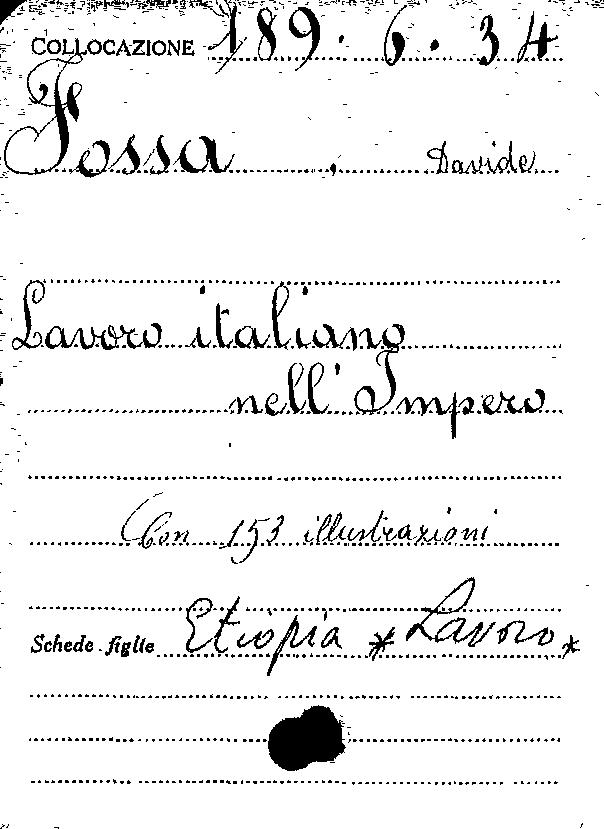 COLLOCAZIONE 189. 6. 34
Fossa, Davide
Lavoro italiano
nell'Impero
Con 153 illustrazioni
Schede figlie Etiopia * Lavoro *